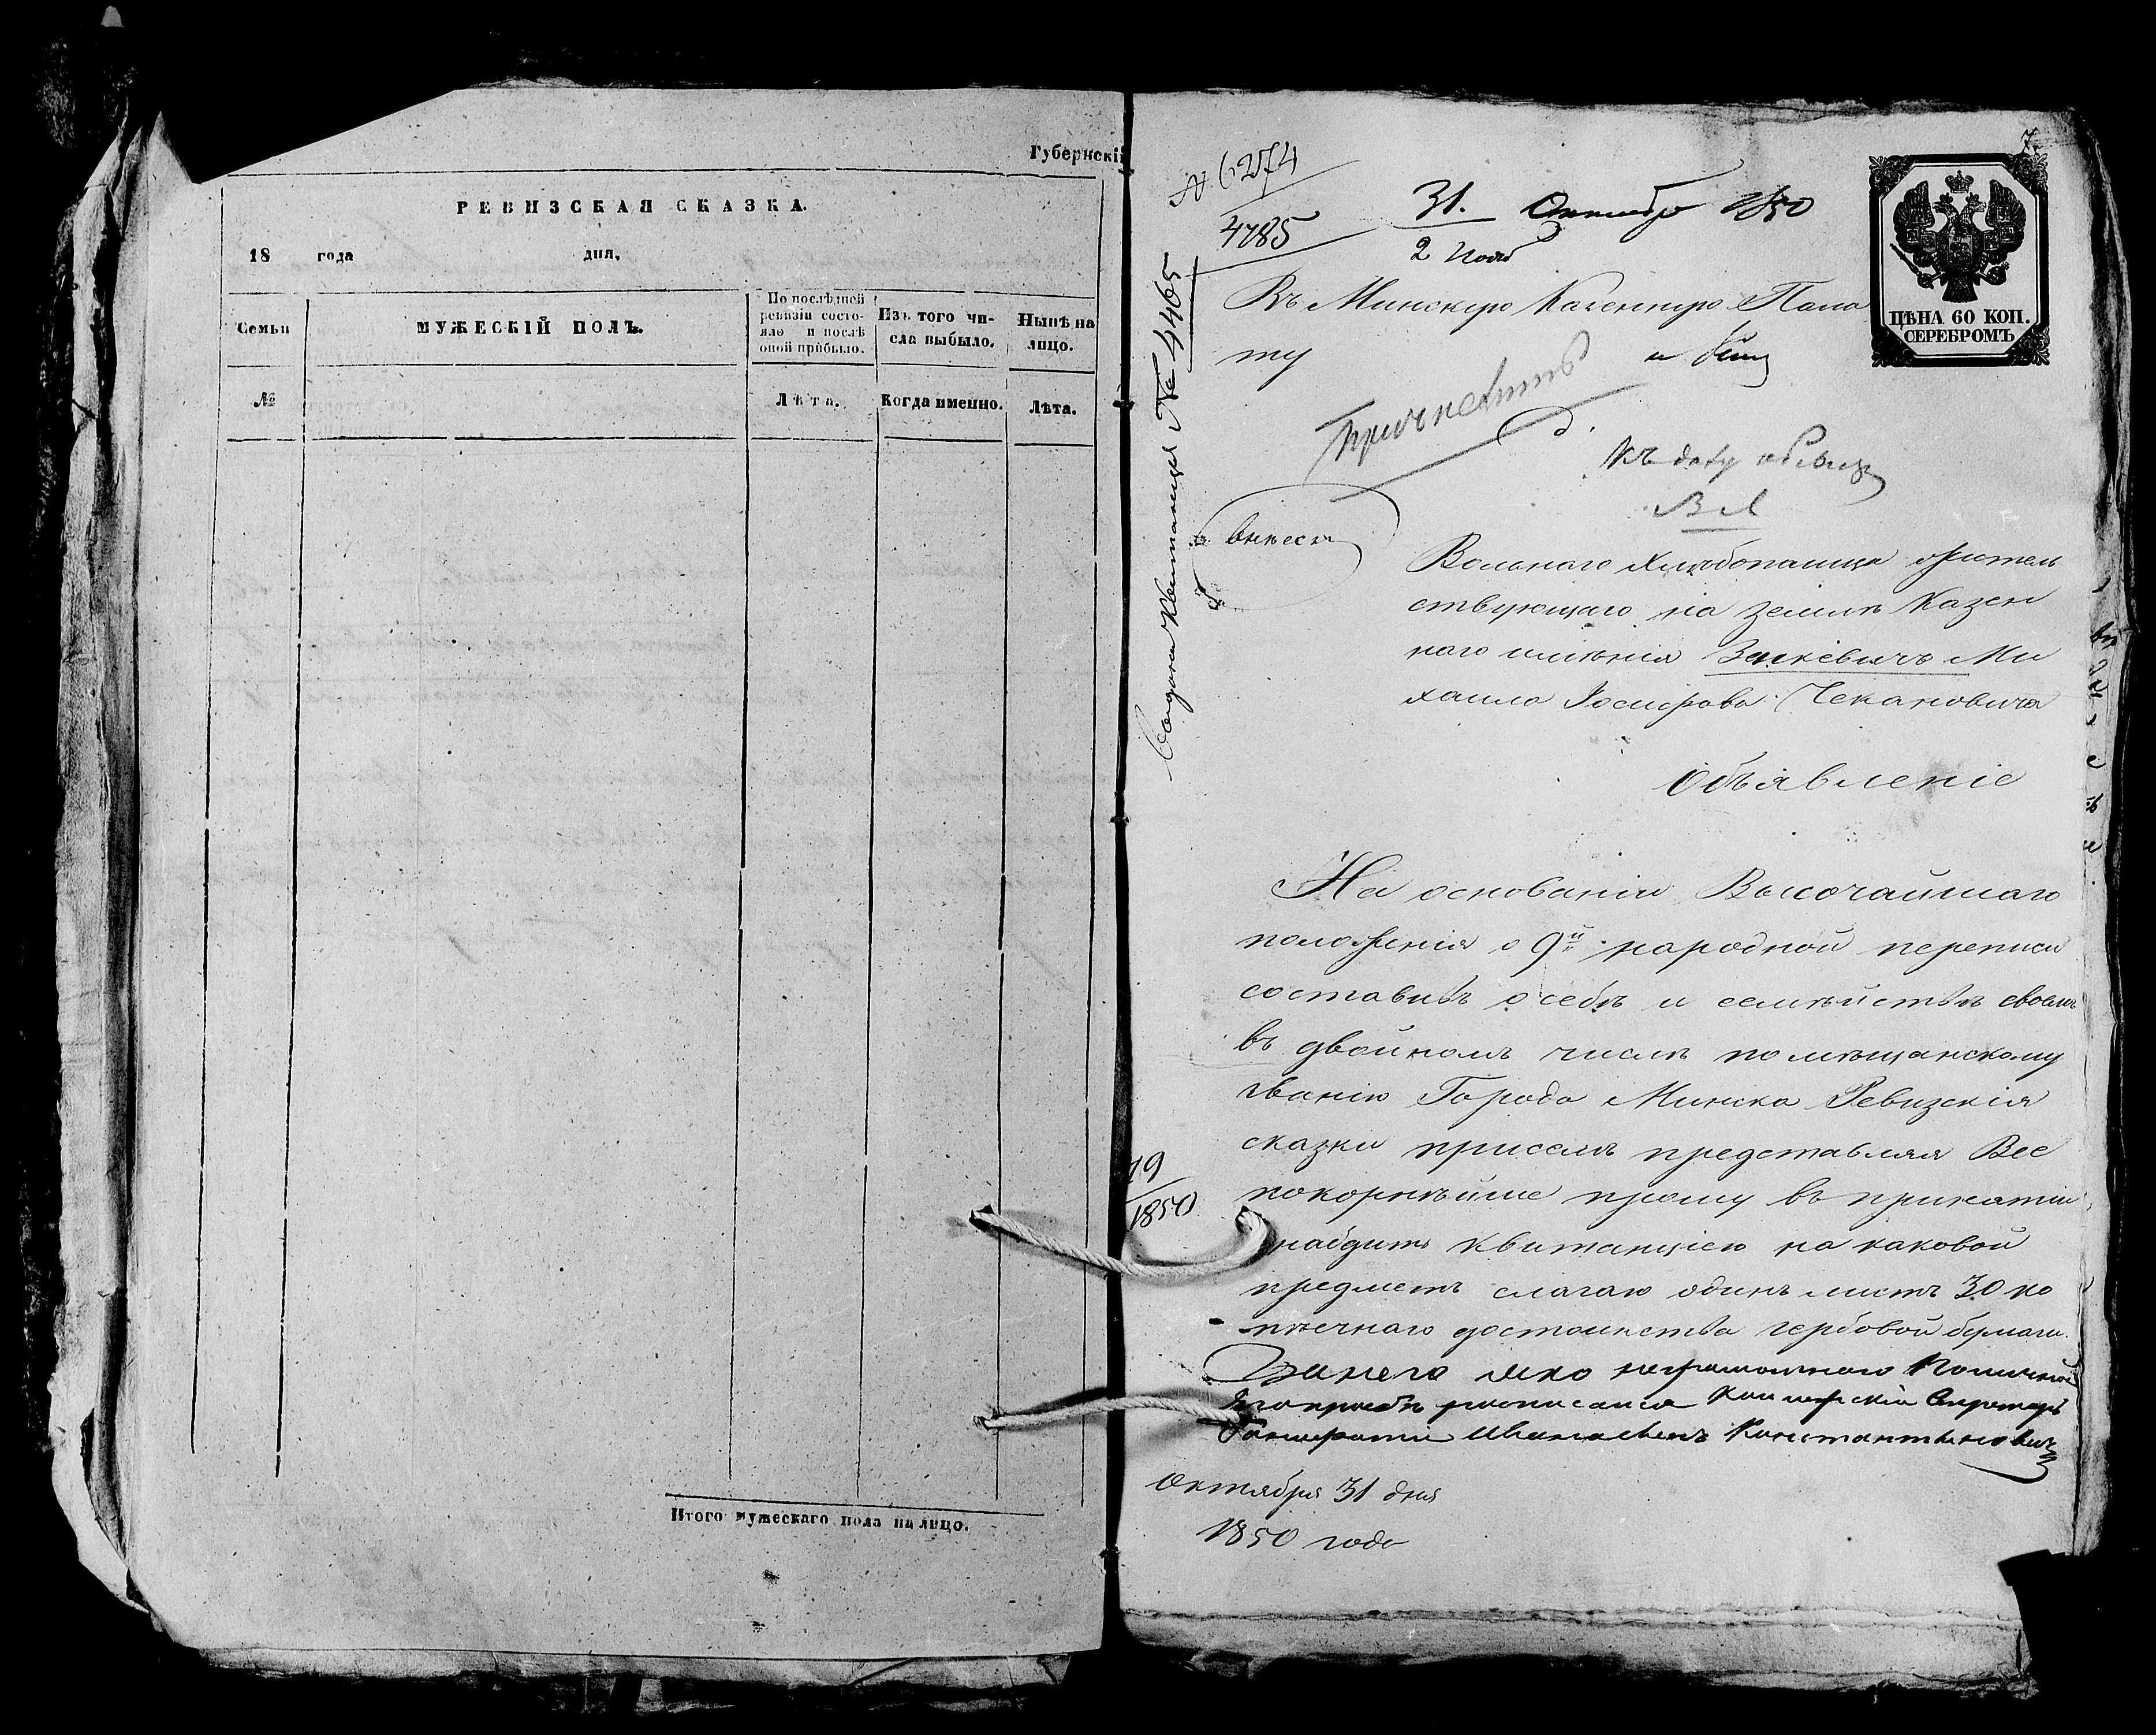 Губернскій
РЕВИЗСКАЯ СКАЗКА.
18 года дня.
Семьи
МУЖЕСКІЙ ПОЛЪ.
По послѣдней ревизіи состояло и послѣ оной прибыло.
Изъ того числа выбыло.
Нынѣ на лицо.
№
Лѣта.
Когда именно.
Лѣта.
Итого мужескаго пола на лицо.
7.
№ 6274
4785
31. Октября 1850
2 Нояб
ЦѢНА 60 КОП.
СЕРЕБРОМЪ
Въ Минскую Казенную Пала
ту
Выдана Квитанція № 4465
внести
Вольнаго Хлѣбопашца житель
ствующаго на землѣ Казен
наго имѣнія Михаила Іосифова Чекановича
Объявленіе
На основаніи Высочайшаго
положенія о 9й народной переписи
составивъ о себѣ и семѣйствѣ своемъ
въ двойномъ числѣ по мѣщанскому
званію Города Минска Ревизскія
сказки присемъ представляя Все
покорнѣйше прошу въ принятіи
снабдить Квитанціею на каковой
предметъ слагаю одинъ листъ 30 ко
пѣечнаго достоинства гербовой бумаги.
За него яко неграмотнаго
его прозьбѣ росписался Коллежскій Секретарь
Константиновичъ
Октября 31 дня
1850 года
19
1850